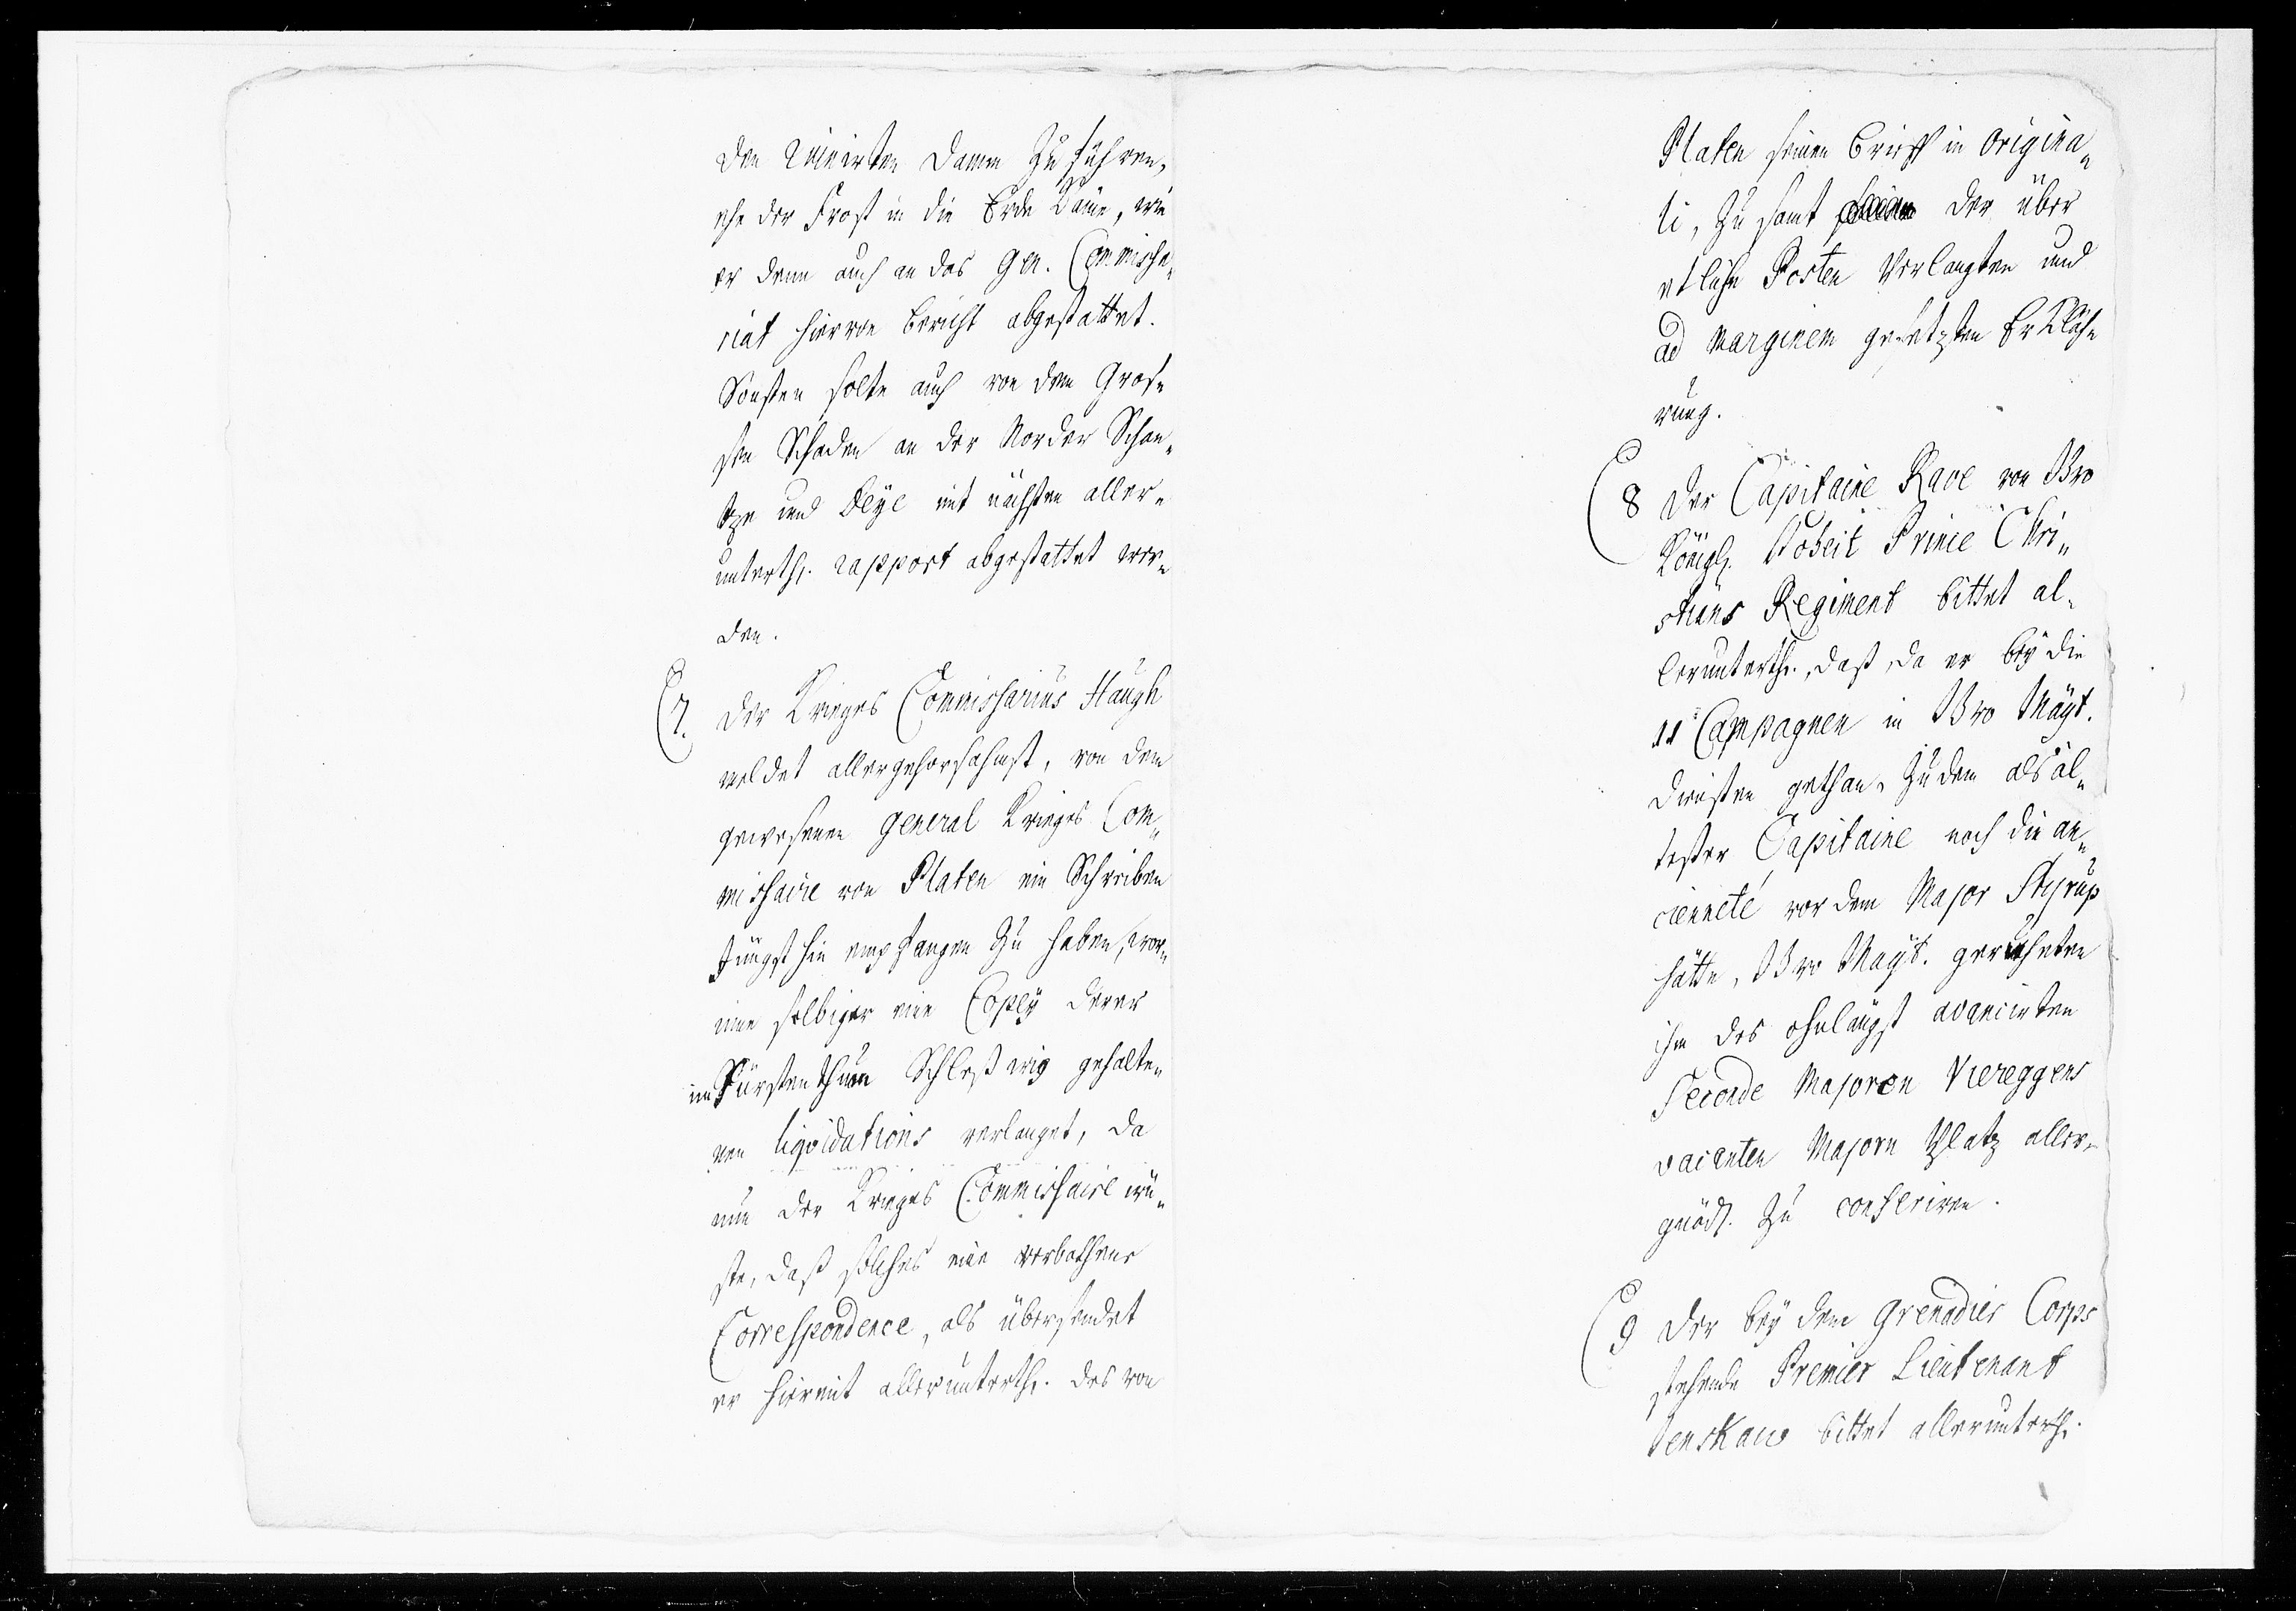 den ruinirten Damm zu führen,
ehe der Frost in die Erde käme, wie
er denn auch an das Gen. Commissa„
riat hievon Bericht abgestattet.
Sonsten solte auch von dem Gros„
sen Schaden an der Norder Schan„
tze und Deÿe mit nächsten aller„
unterth. rapport abgestattet wer„
den.
7. Der Krieges Commissarius Haugh
meldet allergehorsahmst, von dem
gewesenen General Krieges Com„
missaire von Platen ein Schreiben
Jüngst hin empfangen zu haben, wor„
inne selbiger eine Copeÿ derer
im Fürstenthum Schleßwig gehalte„
nen liqvidations verlanget, da
nun der Krieges Commissaire wü„
ste, daß solches eine verbothene
Correspondence, als übersendet
er hiermit allerunterth. des von
Platen seinen Brieff in Origina„
li, zu samt der über
etliche Posten verlangten und
ad Marginem gesetzten Erkläh„
rung.
8 Der Capitaine Rave von Ihro
Königl. Hoheit Prince Chri„
stians Regiment bittet al„
lerunterth., daß, da er beÿ die
11 Campagnen in Ihro Maÿt.
Diensten gethan, zu dem als äl„
tester Capitaine noch die an„
cienneté vor dem Major Styrup
hätte, Ihro Maÿt. geruheten
ihm des ohnlängst avancirten
Seconde Majoren Viereggens
vacanten Majors Platz aller„
gnädt. zu conferiren.
9 Der beÿ dem Grenadier Corps
stehende Premier Lieutenant
Jenskaw bittet allerunterth.